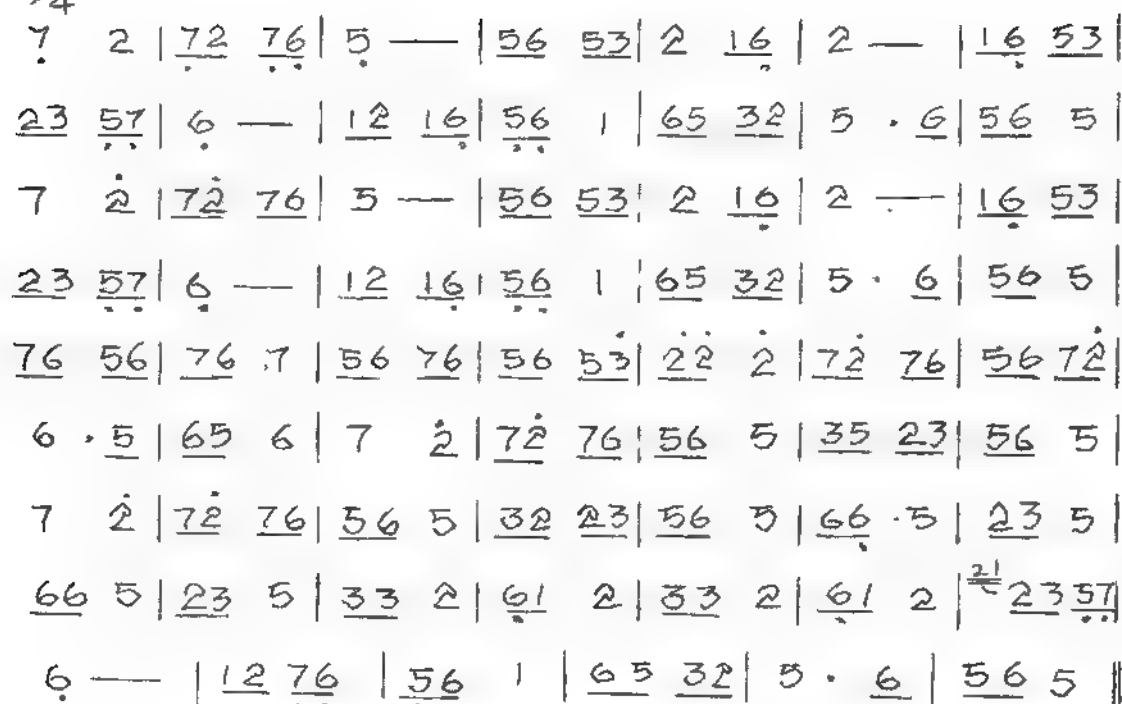 7̣ 2 | 7̣2 7̣6̣ | 5̣ — | 56 53 | 2 16̣ | 2 — | 16̣ 53 |
23 5̣7̣ | 6̣ — | 12 16̣ | 5̣6̣ 1 | 65 32 | 5 · 6 | 56 5 |
7 2̇ | 72̇ 76 | 5 — | 56 53 | 2 16̣ | 2 — | 16̣ 53 |
23 5̣7̣ | 6̣ — | 12 16̣ | 5̣6̣ 1 | 65 32 | 5 · 6 | 56 5 |
76 56 | 76 7 | 56 76 | 56 53̇ | 2̇2̇ 2̇ | 72̇ 76 | 56 72̇ |
6 · 5 | 65 6 | 7 2̇ | 72̇ 76 | 56 5 | 35 23 | 56 5 |
7 2̇ | 72̇ 76 | 56 5 | 32 23 | 56 5 | 66̣ · 5 | 23 5 |
66 5 | 23 5 | 33 2 | 6̣1 2 | 33 2 | 6̣1 2 | 21 23 5̣7̣ |
6̣ — | 12 7̣6̣ | 5̣6̣ 1 | 65 32 | 5 · 6 | 56 5 ‖